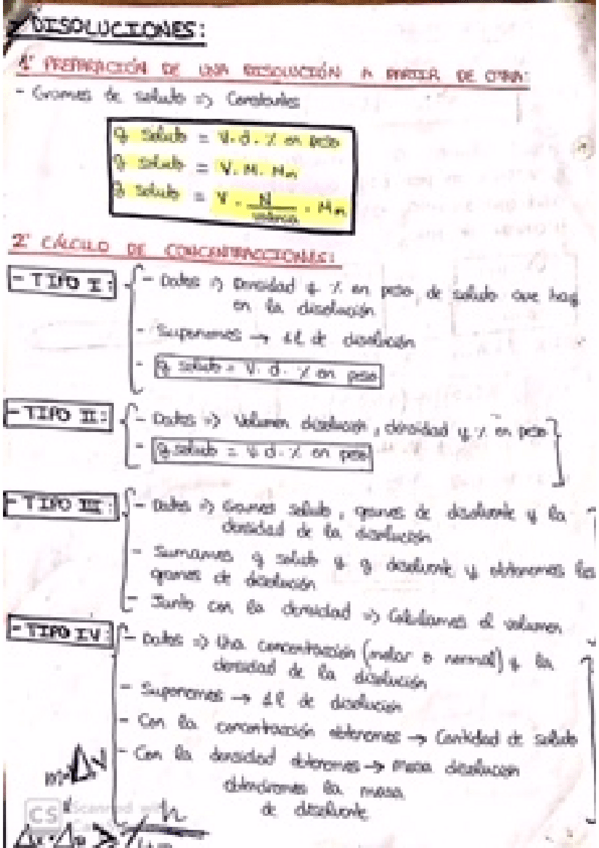 DISOLUCIONES:
1º PREPARACIÓN DE UNA DISOLUCIÓN A PARTIR DE OTRA:
- Gramos de soluto => Constantes
g soluto = V. d. % en peso
g soluto = V. M. Mm
g soluto = V . N/valencia . Mm
2º CÁLCULO DE CONCENTRACCIONES:
- TIPO I:
- Datos => Densidad y % en peso, de soluto que hay
en la disolución
- Suponemos → 1l de disolución
- g soluto = V. d. % en peso
- TIPO II:
- Datos => Volumen disolución, densidad y % en peso
- g soluto = V. d. % en peso
- TIPO III:
- Datos => Gramos soluto, gramos de disolvente y la
densidad de la disolución
- Sumamos g soluto y g disolvente y obtenemos los
gramos de disolución
- Junto con la densidad => Calculamos el volumen
- TIPO IV:
- Datos => Una concentración (molar o normal) y la
densidad de la disolución
- Suponemos → 1l de disolución
- Con la concentración obtenemos → Cantidad de soluto
- Con la densidad obtenemos → masa disolución
obtendremos la masa
de disolvente
m=ΔV
CS Scanned with
h
Δx·Δ